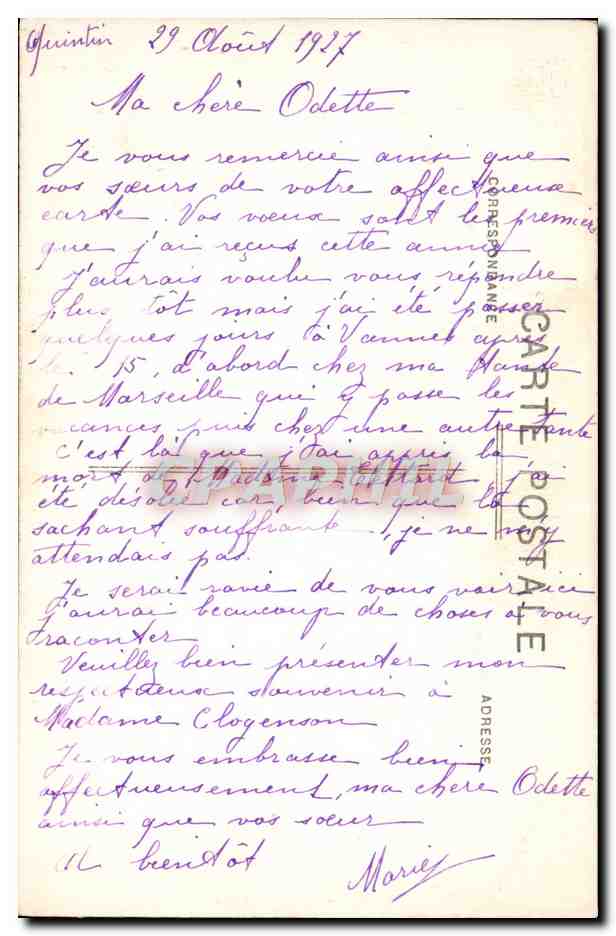 Quintin 29 Août 1927
Ma chère Odette
Je vous remercie ainsi que
vos sœurs de votre affectueuse
carte. Vos vœux sont les premiers
que j'ai reçus cette année
J'aurais voulu vous répondre
plus tôt mais j'ai été passer
quelques jours à Vannes après
le 15, d'abord chez ma tante
de Marseille qui y passe les
vacances puis chez une autre tante
C'est là que j'ai appris la
mort de Madame j'ai
été désolée car bien que la
sachant souffrante, je ne m'y
attendais pas.
Je serai ravie de vous voir ici
j'aurai beaucoup de choses à vous
raconter
Veuillez bien présenter mon
respectueux souvenir à
Madame Clogenson
Je vous embrasse bien
affectueusement, ma chère Odette
ainsi que vos sœur
A bientôt
Marie
CARTE POSTALE
CORRESPONDANCE
ADRESSE
CPAPHIL